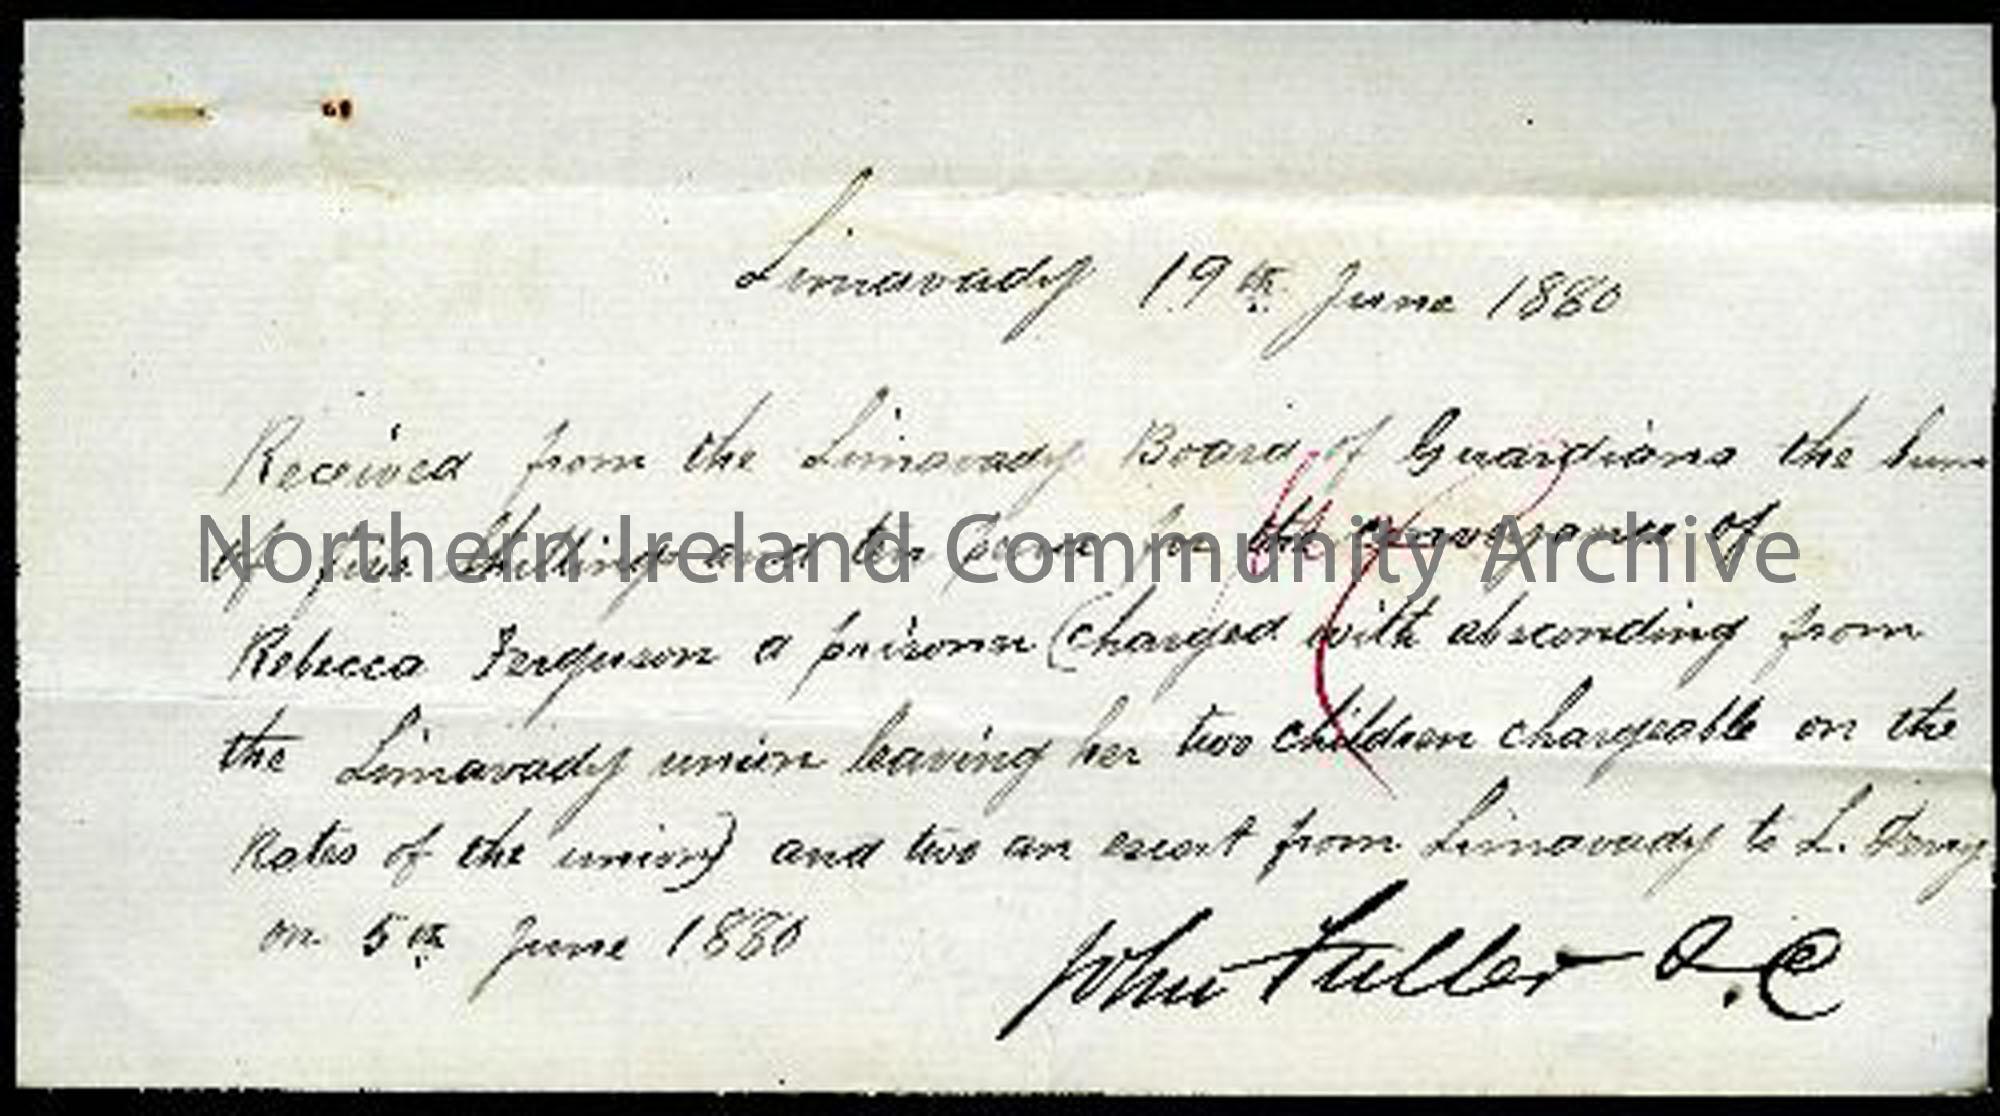 Limavady 19th June 1880
Received from the Limavady Board of Guardians the sum
of five Shillings and ten pence for the conveyance of
Northern Ireland Community Archive
Rebecca Ferguson a prisoner (charged with absconding from
the Limavady union leaving her two children chargeable on the
Rates of the union) and two an escort from Limavady to L. Derry
on 5th June 1880
John Fuller A.C